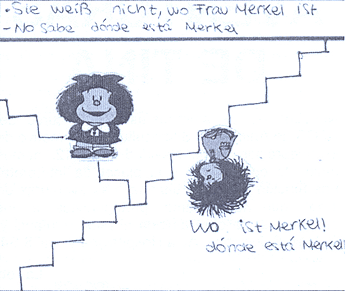 - Sie weiß nicht, wo Frau Merkel ist
- No sabe dónde está Merkel
Wo ist Merkel!
dónde está Merkel!